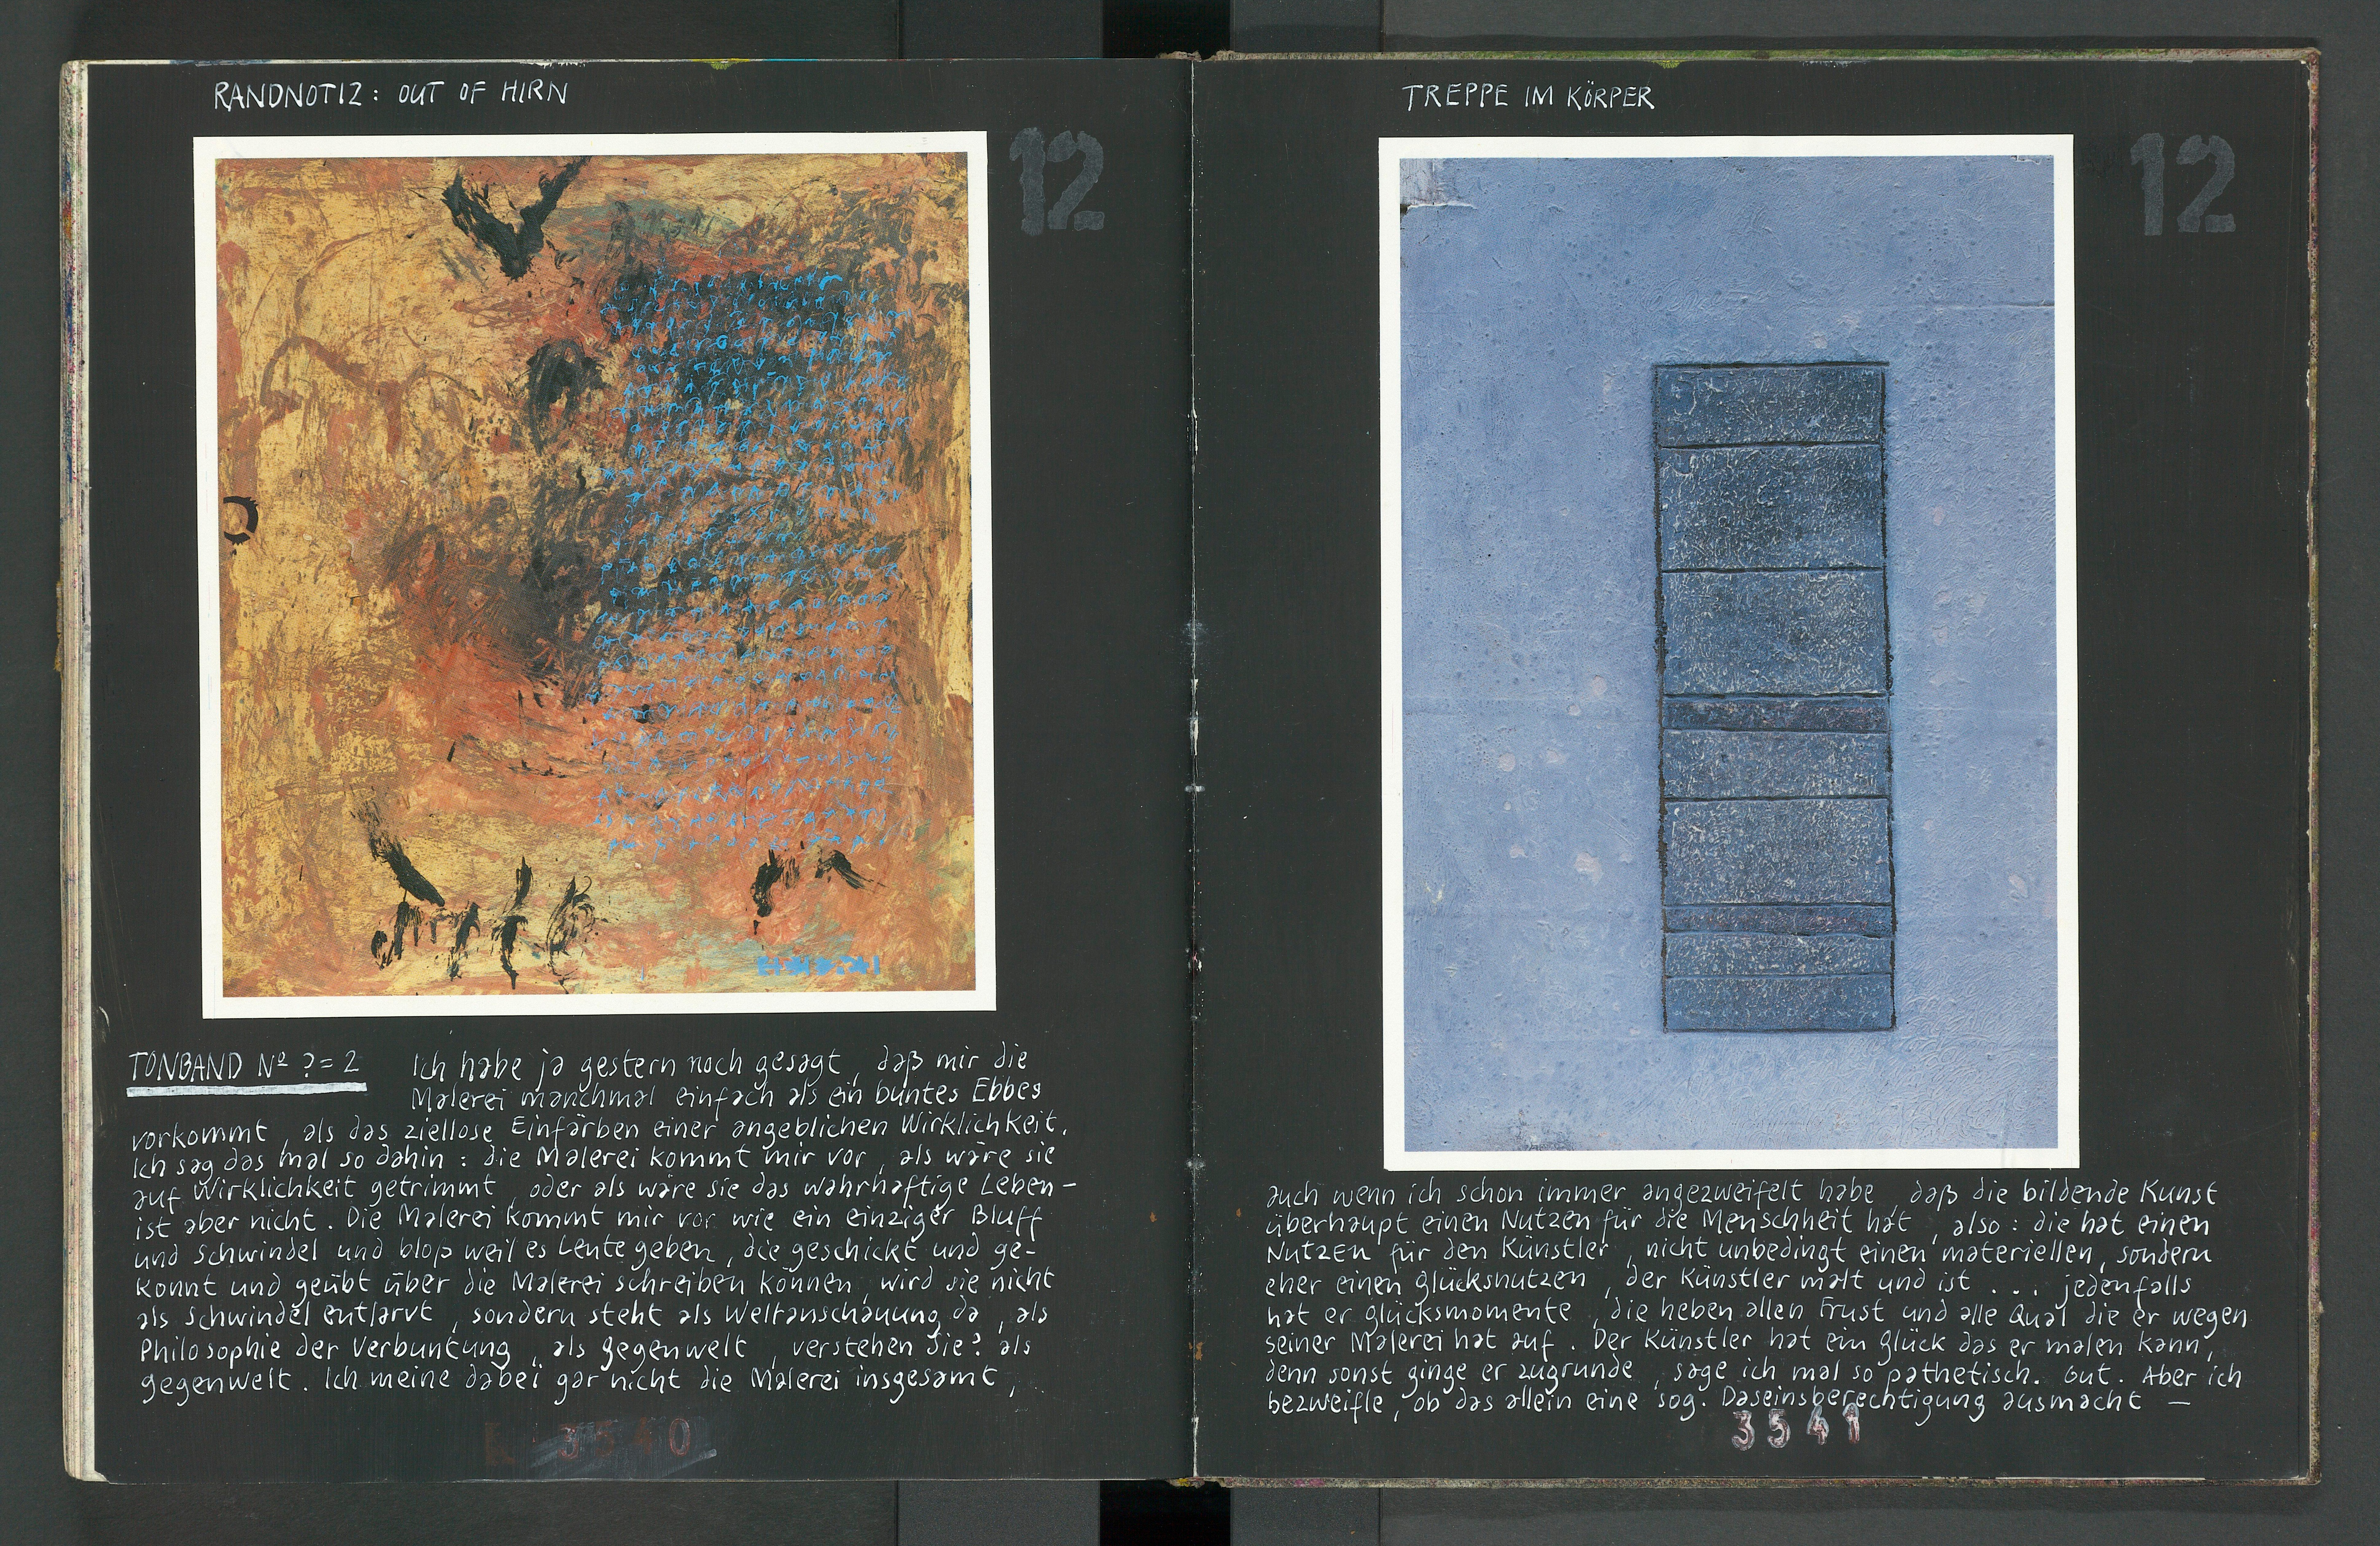 RANDNOTIZ: OUT OF HIRN
12
TONBAND Nº ? = 2 Ich habe ja gestern noch gesagt, daß mir die
Malerei manchmal einfach als ein buntes Ebbes
vorkommt, als das ziellose Einfärben einer angeblichen Wirklichkeit.
Ich sag das mal so dahin: die Malerei kommt mir vor, als wäre sie
auf Wirklichkeit getrimmt, oder als wäre sie das wahrhaftige Leben-
ist aber nicht. Die Malerei kommt mir vor wie ein einziger Bluff
und Schwindel und bloß weil es Leute geben, die geschickt und ge-
konnt und geübt über die Malerei schreiben können, wird sie nicht
als Schwindel entlarvt, sondern steht als Weltanschauung da, als
Philosophie der Verbuntung, als Gegenwelt, verstehen Sie? als
Gegenwelt. Ich meine dabei gar nicht die Malerei insgesamt,
3540
TREPPE IM KÖRPER
12
auch wenn ich schon immer angezweifelt habe, daß die bildende Kunst
überhaupt einen Nutzen für die Menschheit hat, also: die hat einen
Nutzen für den Künstler, nicht unbedingt einen materiellen, sondern
eher einen Glücksnutzen, der Künstler malt und ist ... jedenfalls
hat er Glücksmomente, die heben allen Frust und alle Qual die er wegen
seiner Malerei hat auf. Der Künstler hat ein Glück das er malen kann,
denn sonst ginge er zugrunde, sage ich mal so pathetisch. Gut. Aber ich
bezweifle, ob das allein eine sog. Daseinsberechtigung ausmacht —
3541